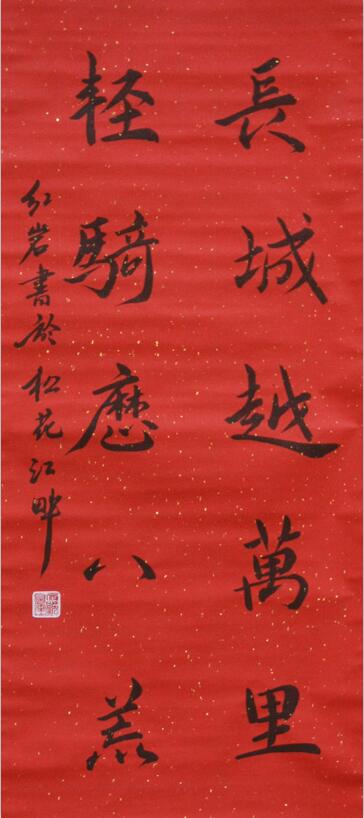 長城越萬里
軽騎歷八荒
红岩書於松花江畔